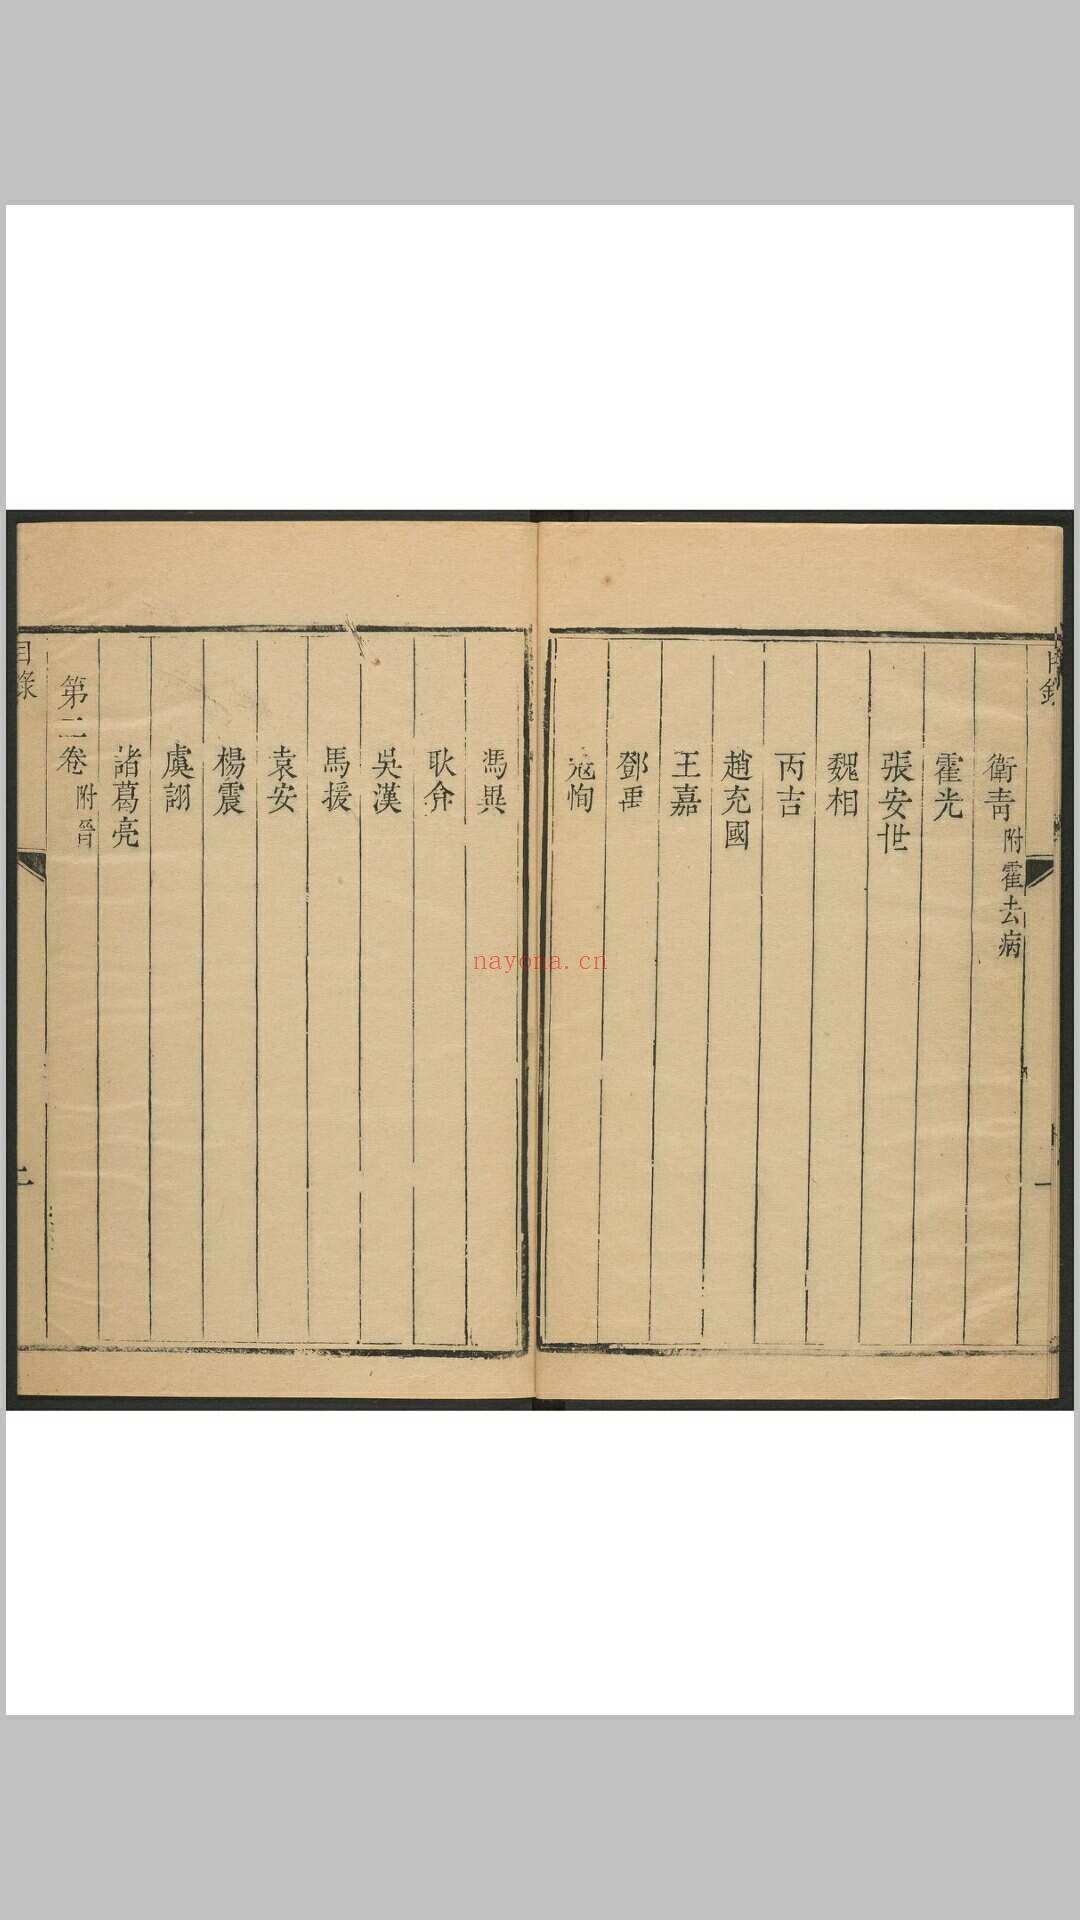 目錄
一
衛青附霍去病
霍光
張安世
魏相
丙吉
趙充國
王嘉
鄧禹
寇恂
馮異
耿弇
吳漢
馬援
袁安
楊震
虞詡
諸葛亮
第二卷附晉
目錄
二
nayona.cn